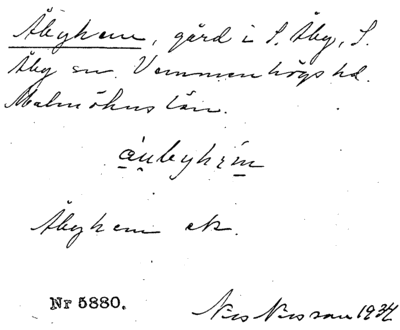 Åbyhem, gård i S. Åby, S.
Åby sn. Vemmenhögs hd.
Malmöhus län.
ȧu̯byhɛm
Åbyhem ek.
Nr 5880.
Nils Nilsson 1934